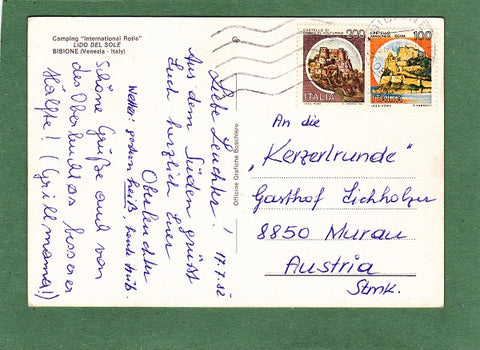 Camping "International Rotis"
LIDO DEL SOLE
BIBIONE (Venezia - Italy)
Liebe Leuchter!
17.7.82
Aus dem Süden grüßt
Euch herzlich Euer
Oberleuchter
Wetter: gestern heiß, heute trüb.
Schöne Grüße auch von
des Oberleuchters besserer
Hälfte! (Grillmama!)
Officine Grafiche Boschiero
200
ITALIA
100
ITALIA
An die
"Kerzerlrunde"
Gasthof Lichholzer
8850 Murau
Austria
Stmk.